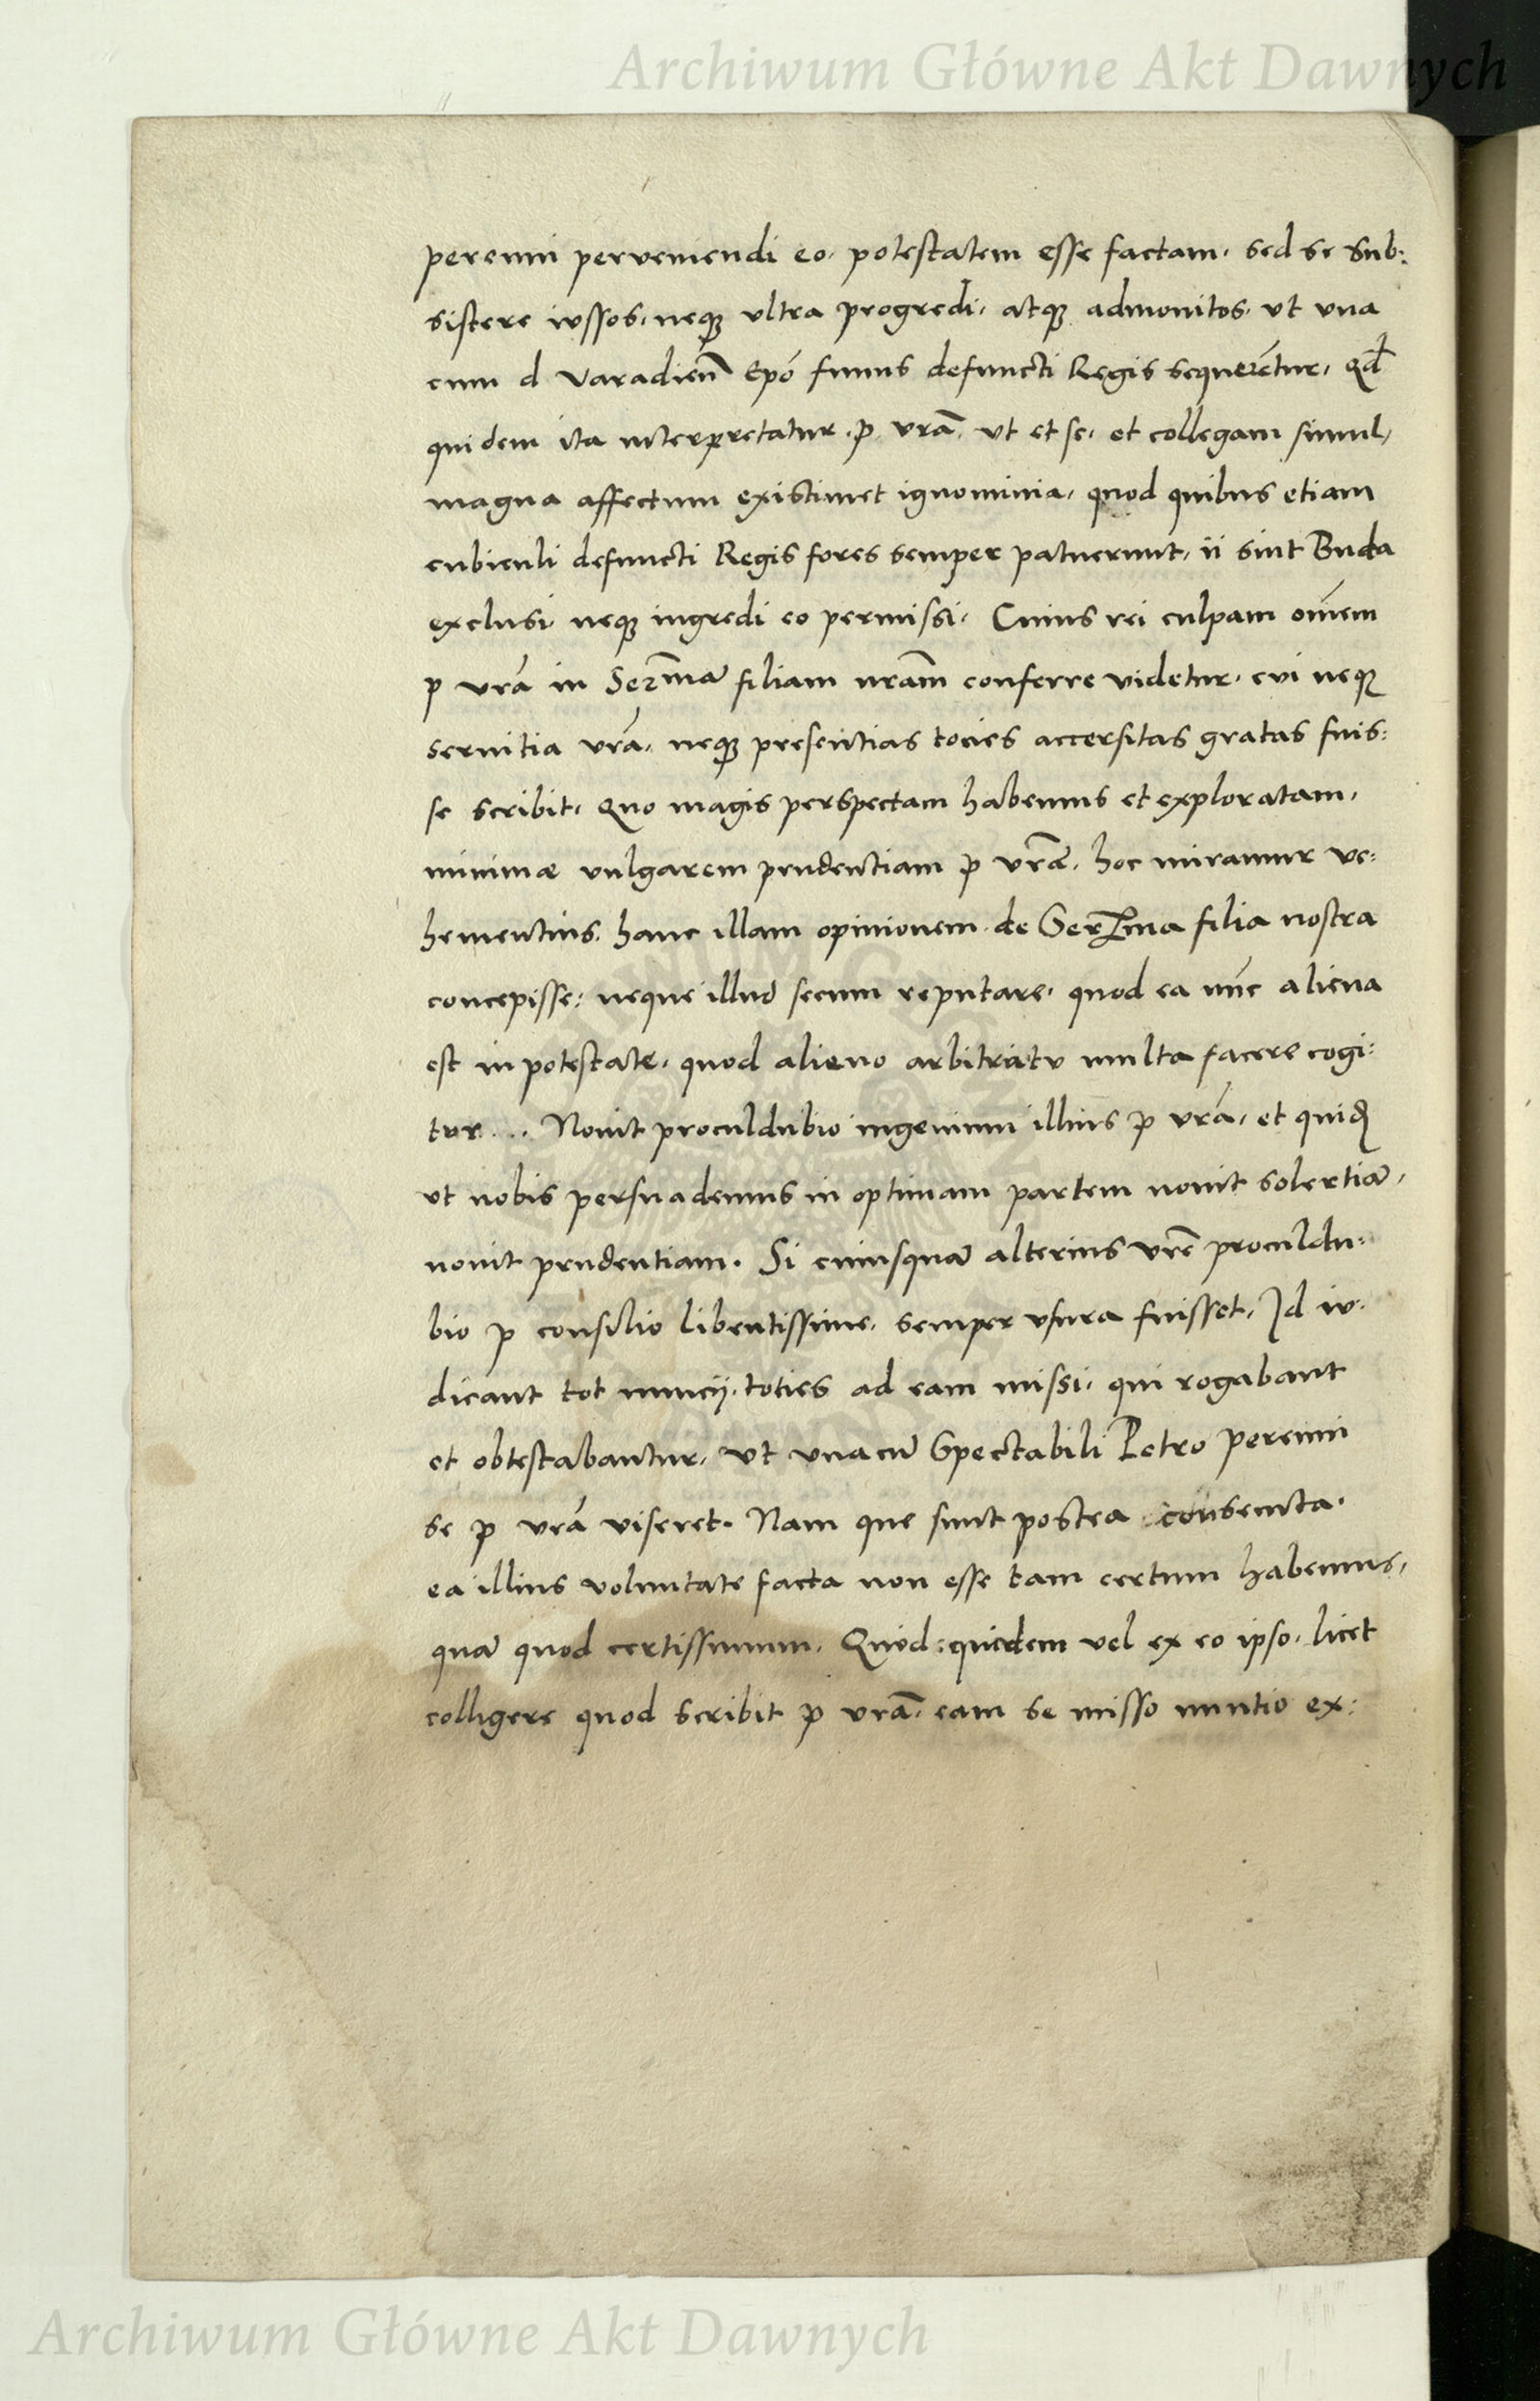 Archiwum Główne Akt Dawnych
perenni perveniendi eo, potestatem esse factam, sed se sub:
sistere iussos, neqꝫ ultra progredi, atqꝫ admonitos, ut una
cum d Varadieñ Epõ funus defuncti Regis sequerẽtur, Qđ
quidem ita interpretatur p vrã, ut et se, et collegam simul,
magna affectum existimet ignominia, quod quibus etiam
cubiculi defuncti Regis fores semper patuerunt, ii sint Buda
exclusi neqꝫ ingredi eo permissi. Cuius rei culpam oẽm
p vrã in Serᵐᵃ filiam nrãm conferre videtur, cui neqꝫ
servitia vrã, neqꝫ presentias tocies accersitas gratas fuis:
se scribit, Quo magis perspectam habemus et exploratam,
minimæ vulgarem prudentiam p vræ̃, hoc miramur ve:
hementius, hanc illam opinionem de Serᵐᵃ filia nostra
concepisse: neque illud secum reputare, quod ea nũc aliena
est in potestate, quod alieno arbitratu multa facere cogi:
tur ... Novit proculdubio ingenium illius p vrã, et quiđ
ut nobis persuademus in optimam partem novit solertiã,
novit prudentiam. Si cuiusquã alterius vrẽ proculdu:
bio p consilio libentissime, semper usura fuisset, Id iu:
dicant tot nuncij, toties ad eam missi, qui rogabant
et obtestabantur, ut unacũ Spectabili Petro perenni
se p vrã viseret. Nam que sunt postea consecuta,
ea illius voluntate facta non esse tam certum habemus,
quã quod certissimum, Quod quidem vel ex eo ipso, licet
colligere quod scribit p vrã, eam se misso nuntio ex:
Archiwum Główne Akt Dawnych